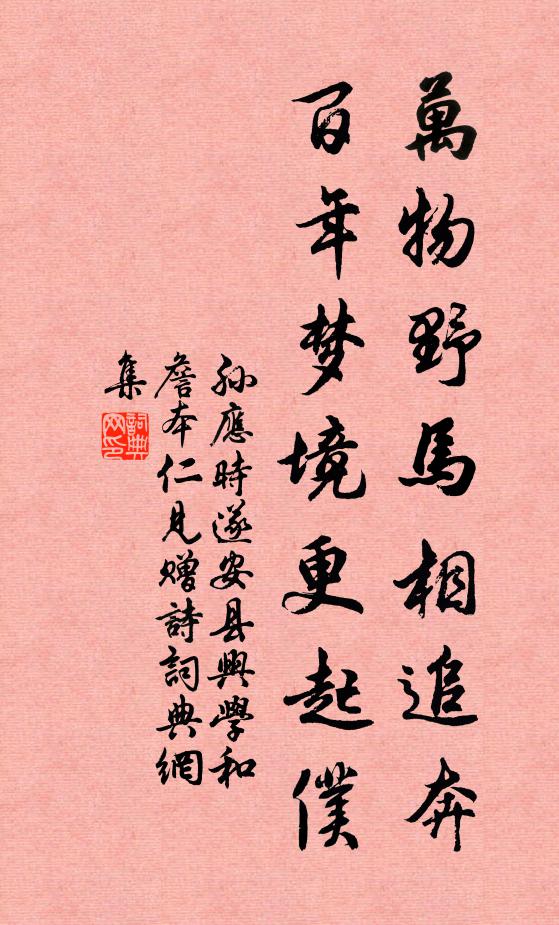 萬物野馬相追奔
百年梦境更起僕
孙應時遂安县興學和
詹本仁見赠詩詞典網
集
詞典
网印